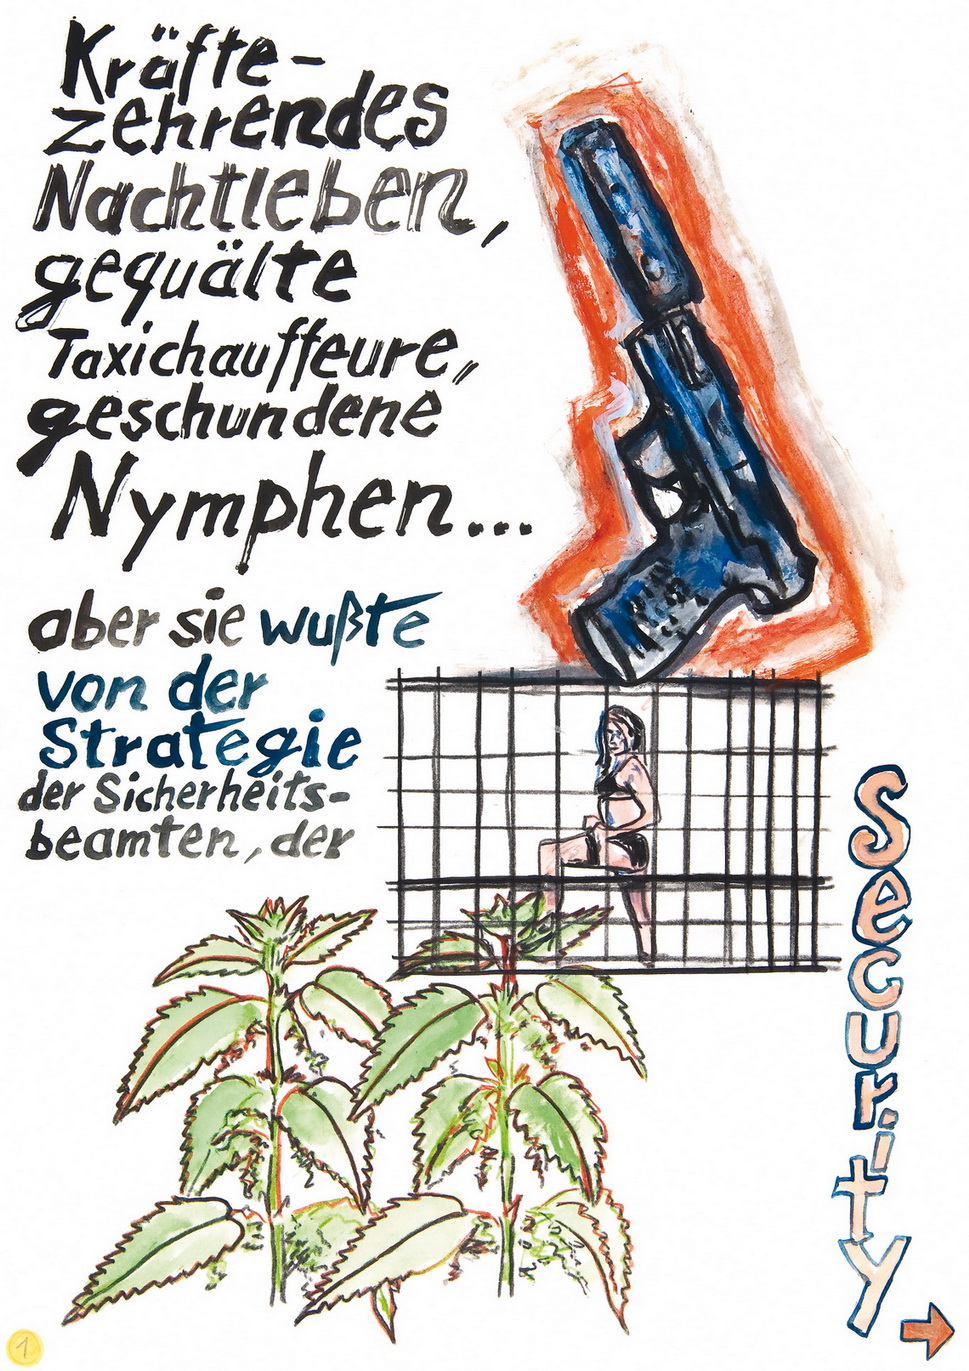 Kräfte-
zehrendes
Nachtleben,
gequälte
Taxichauffeure,
geschundene
Nymphen...
aber sie wußte
von der
Strategie
der Sicherheits-
beamten, der
Security
1